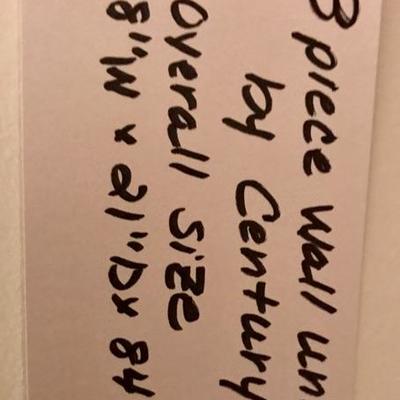 3 piece wall un
by Century
Overall size
8"W x 21"D x 84